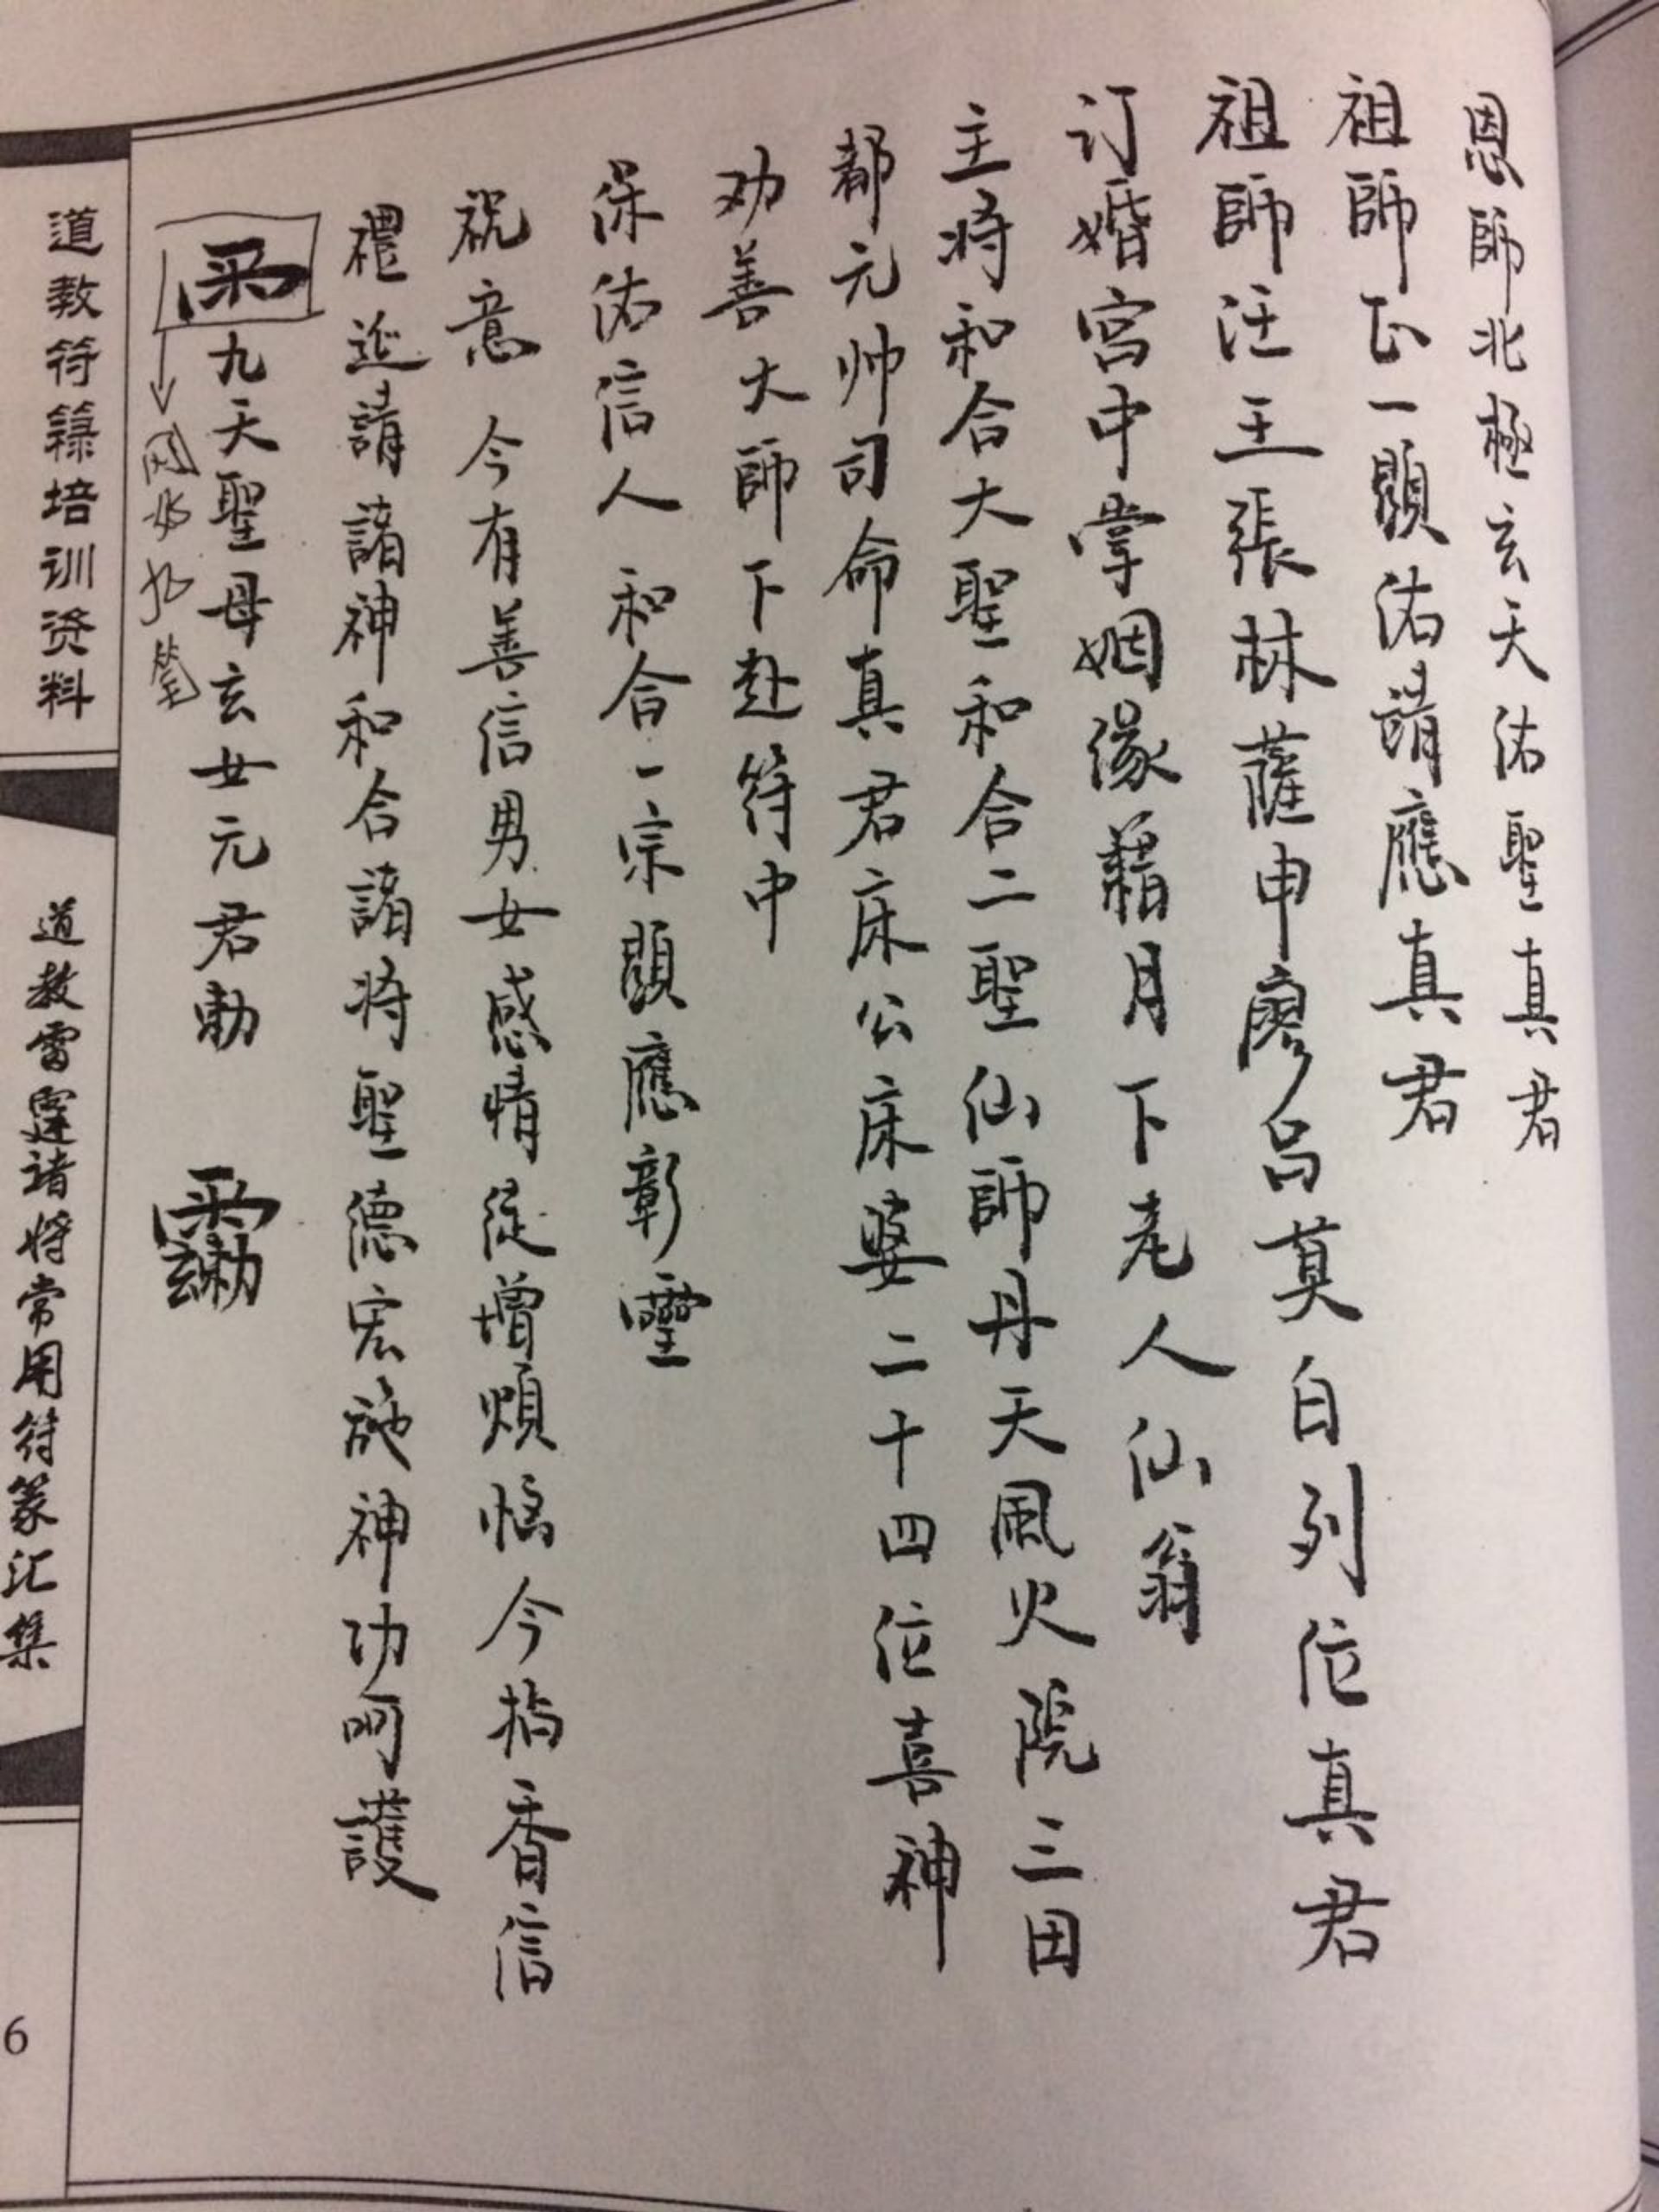 恩師北極玄天佑聖真君
祖師正一顯佑請應真君
祖師汪王張林薩申廖呂莫白列位真君
订婚宮中掌姻缘藉月下老人仙翁
主将和合大聖和合二聖仙師丹天風火院三田
都元帅司命真君床公床婆二十四位喜神
劝善大師下赴符中
保佑信人 和合一宗顯應彰靈
祝意 今有善信男女感情徒增煩惱今拈香信
禮延請諸神和合諸将聖德宏施神功呵護
九天聖母玄女元君勅
道教符籙培训资料
道教雷霆诸将常用符篆汇集
6